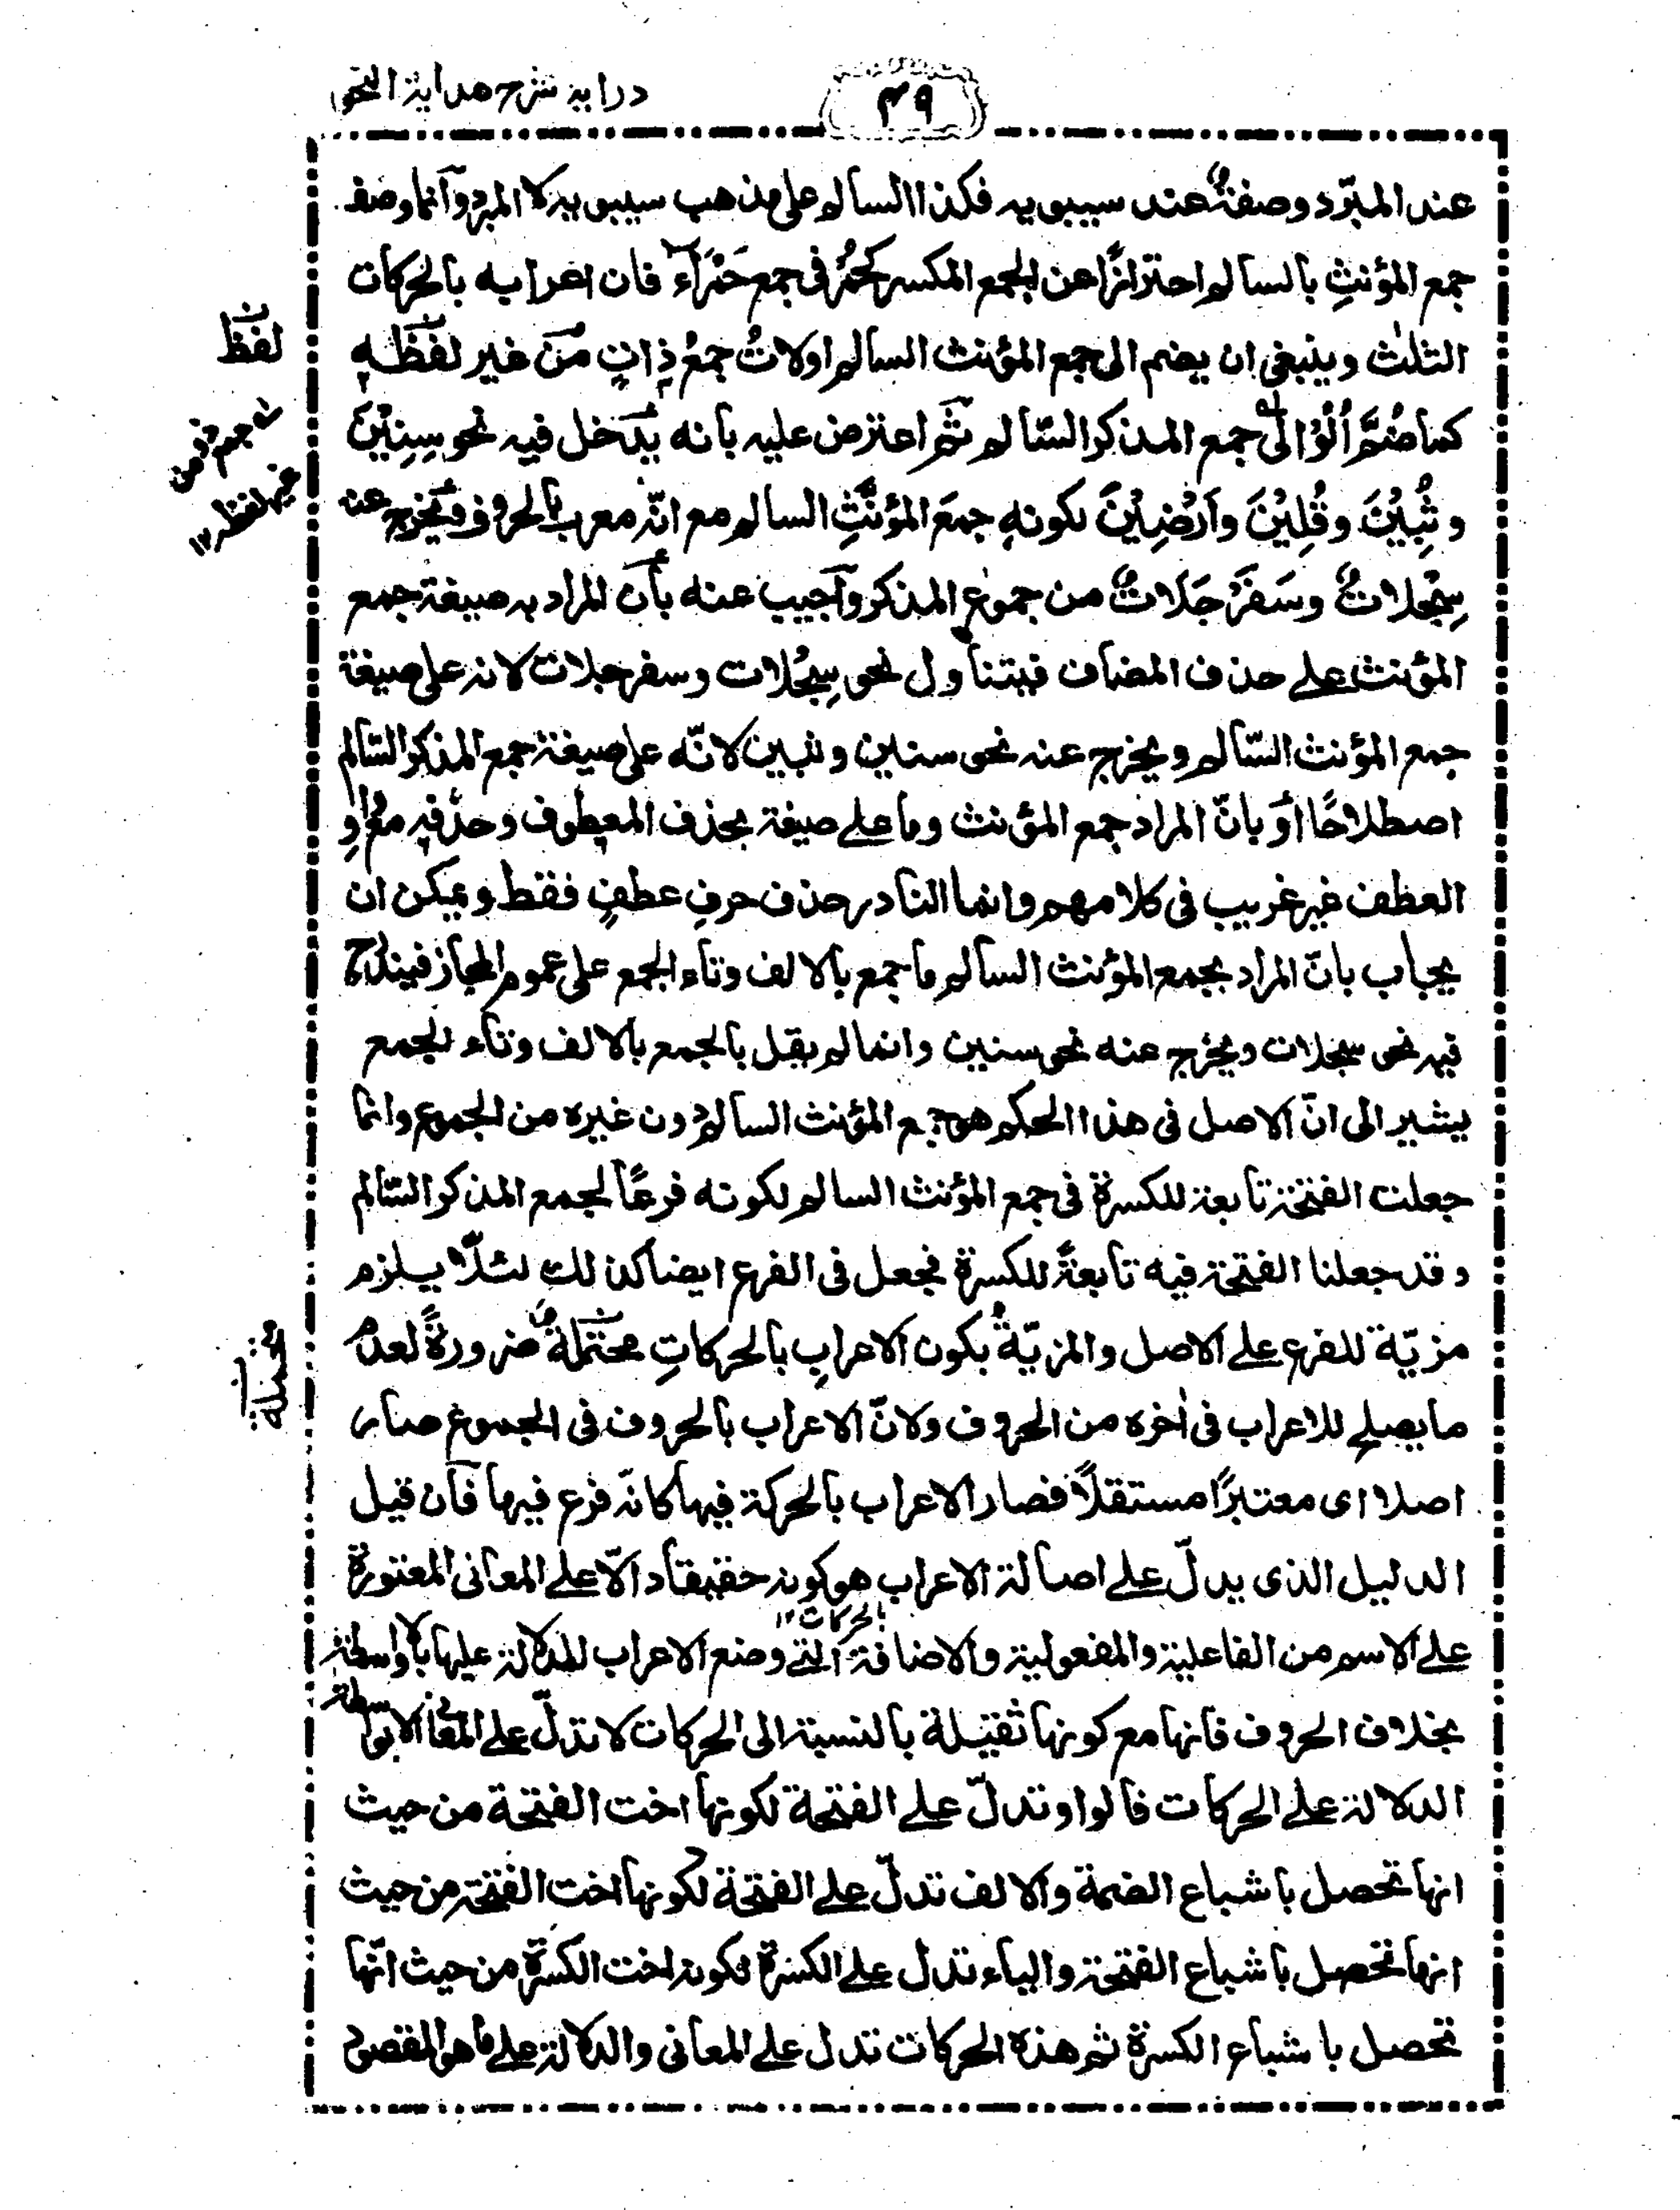 درایه شرح هدایة النحو
۳۹
عند المبرّد وصفةٌ عند سیبویه فکذا السالم علی مذهب سیبویه لا المبرد وانما وصف
جمع المؤنثِ بالسالم احترازًا عن الجمع المکسر کحُمُرٍ فی جمع حَمْرَاءَ فان اعرابه بالحرکات
الثلٰث وینبغی ان یضم الی جمع المؤنث السالم اولاتُ جمعُ ذاتٍ من غیر لفظہٖ
کما ضُمَّ اُلُوْا الی جمع المذکر السّالم ثم اعترض علیه بانه یدخل فیه نحو سِنِیْنَ
وثُبِیْنَ وقُلِیْنَ واَرَضِیْنَ لکونهٖ جمعَ المؤنَّثِ السالم مع انّه معرب بالحروف ویخرج عنه
سِجِلاتٌ وسَفَرْجَلَاتٌ من جموع المذکر واُجیب عنه بأن المراد به صیغة جمع
المؤنث علی حذف المضاف فیتناول نحو سِجِلات وسفرجلات لانه علی صیغة
جمع المؤنث السّالم ویخرج عنه نحو سنین وثبین لانّه علی صیغة جمع المذکر السّالم
اصطلاحًا أو بانّ المراد جمع المؤنث وما علی صیغة بحذف المعطوف وحذفہٖ مع واوِ
العطف غیر غریب فی کلامهم وانما النادر حذف حرفِ عطفٍ فقط ویمکن ان
یجاب بانّ المراد بجمع المؤنث السالم ما جمع بالالف وتاء الجمع علی عموم المجاز فیندرج
فیه نحو سجلات ویخرج عنه نحو سنین وانما لم یقل بالجمع بالالف وتاء الجمع
یشیر الی انّ الاصل فی هذا الحکم هو جمع المؤنث السالم دون غیره من الجموع وانما
جعلت الفتحة تابعة للکسرة فی جمع المؤنث السالم لکونه فرعًا لجمع المذکر السّالم
وقد جعلنا الفتحة فیه تابعةً للکسرة فجعل فی الفرع ایضا کذلك لئلّا یلزم
مزیّة للفرع علی الاصل والمزیّةُ بکون الاعرابِ بالحرکاتِ محتملةٌ ضرورةً لعدم
ما یصلح للاعراب فی اٰخره من الحروف ولانّ الاعراب بالحروف فی الجموع صار
اصلا ای معتبرًا مستقلًّا فصار الاعراب بالحرکة فیها کانّه فرع فیها فان قیل
الدلیل الذی یدلّ علی اصالة الاعراب هو کونه حقیقا دالّا علی المعانی المعتورة
بالحرکات ۱۲
علی الاسم من الفاعلیة والمفعولیة والاضافة التی وضع الاعراب للدلالة علیها بلا واسطة
بخلاف الحروف فانها مع کونها ثقیلة بالنسبة الی الحرکات لا تدلّ علی المعانی الا بواسطة
الدلالة علی الحرکات فالواو تدلّ علی الفتحة لکونها اخت الفتحة من حیث
انها تحصل باشباع الضمة والالف تدلّ علی الفتحة لکونها اخت الفتحة من حیث
انها تحصل باشباع الفتحة والیاء تدل علی الکسرة لکونه اخت الکسرة من حیث انّها
تحصل باشباع الکسرة ثم هذه الحرکات تدل علی المعانی والدلالة علی ما هو المقصود
لفظ
جمع ذو من
غیر لفظه ۱۲
محتملة